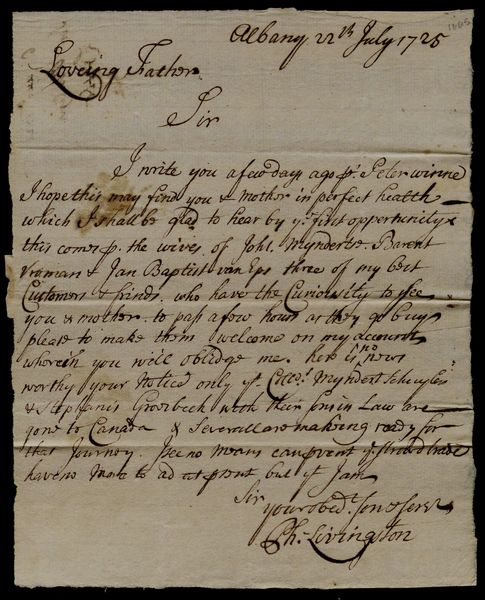 Albany 22th July 1725
Loveing Father
Sir
I write you a few days ago pr. Peter winne
I hope this may find you & mother in perfect health
which I shall be glad to hear by ye. first opportunity
this comes p. the wives of Johs. Mynderse. Barent
Vroman & Jan Baptist van Eps three of my best
Customers & frinds. who have the Curiosity to see
you & mother. to pass a few hours as they go buy
please to make them welcome on my account
wherein you will oblidge me. here is no news
worthy your Notice only yt. Myndert Schuyler
& Stephanis Groesbeck with their sons in Law are
gone to Canada & Severall are making ready for
that Journey. I see no means can prevent ye. stroud trade
have no more to ad at psent but yt I am
Sir
your obedt. son & Servt
Ph: Livingston